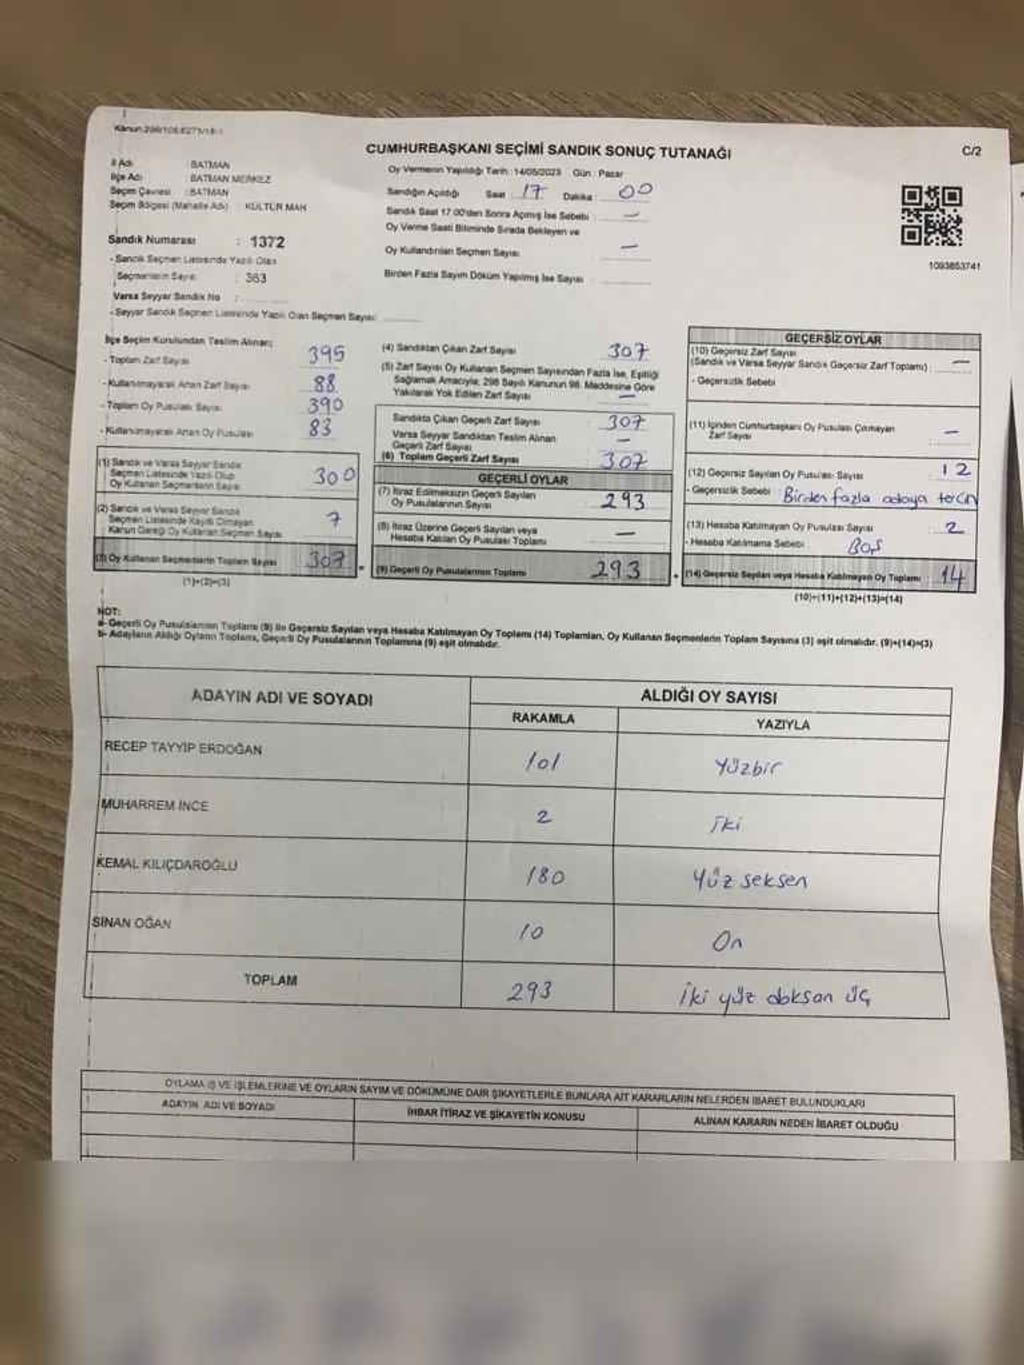 CUMHURBAŞKANI SEÇİMİ SANDIK SONUÇ TUTANAĞI
C/2
İl Adı : BATMAN
İlçe Adı : BATMAN MERKEZ
Seçim Çevresi : BATMAN
Seçim Bölgesi (Mahalle Adı) : KÜLTÜR MAH
Sandık Numarası : 1372
- Sandık Seçmen Listesinde Yazılı Olan
Seçmenlerin Sayısı : 363
Varsa Seyyar Sandık No :
- Seyyar Sandık Seçmen Listesinde Yazılı Olan Seçmen Sayısı:
Oy Vermenin Yapıldığı Tarih : 14/05/2023 Gün : Pazar
Sandığın Açıldığı Saat : 17 Dakika : 00
Sandık Saat 17.00'den Sonra Açılmış İse Sebebi : —
Oy Verme Saati Bitiminde Sırada Bekleyen ve
Oy Kullandırılan Seçmen Sayısı : —
Birden Fazla Sayım Döküm Yapılmış İse Sayısı :
1093853741
İlçe Seçim Kurulundan Teslim Alınan;
- Toplam Zarf Sayısı : 395
- Kullanılmayarak Artan Zarf Sayısı : 88
- Toplam Oy Pusulası Sayısı : 390
- Kullanılmayarak Artan Oy Pusulası : 83
(1) Sandık ve Varsa Seyyar Sandık
Seçmen Listesinde Yazılı Olup
Oy Kullanan Seçmenlerin Sayısı : 300
(2) Sandık ve Varsa Seyyar Sandık
Seçmen Listesinde Kayıtlı Olmayan
Kanun Gereği Oy Kullanan Seçmen Sayısı : 7
(3) Oy Kullanan Seçmenlerin Toplam Sayısı : 307
(1)+(2)=(3)
(4) Sandıktan Çıkan Zarf Sayısı : 307
(5) Zarf Sayısı Oy Kullanan Seçmen Sayısından Fazla İse, Eşitliği
Sağlamak Amacıyla, 298 Sayılı Kanunun 98. Maddesine Göre
Yakılarak Yok Edilen Zarf Sayısı : —
Sandıkta Çıkan Geçerli Zarf Sayısı : 307
Varsa Seyyar Sandıktan Teslim Alınan
Geçerli Zarf Sayısı : —
(6) Toplam Geçerli Zarf Sayısı : 307
GEÇERLİ OYLAR
(7) İtiraz Edilmeksizin Geçerli Sayılan
Oy Pusulalarının Sayısı : 293
(8) İtiraz Üzerine Geçerli Sayılan veya
Hesaba Katılan Oy Pusulası Toplamı : —
(9) Geçerli Oy Pusulalarının Toplamı : 293
GEÇERSİZ OYLAR
(10) Geçersiz Zarf Sayısı
(Sandık ve Varsa Seyyar Sandık Geçersiz Zarf Toplamı) : —
- Geçersizlik Sebebi
(11) İçinden Cumhurbaşkanı Oy Pusulası Çıkmayan
Zarf Sayısı : —
(12) Geçersiz Sayılan Oy Pusulası Sayısı : 12
- Geçersizlik Sebebi : Birden fazla adaya tercih
(13) Hesaba Katılmayan Oy Pusulası Sayısı : 2
- Hesaba Katılmama Sebebi : BOŞ
(14) Geçersiz Sayılan veya Hesaba Katılmayan Oy Toplamı : 14
(10)+(11)+(12)+(13)=(14)
NOT:
a- Geçerli Oy Pusulalarının Toplamı (9) ile Geçersiz Sayılan veya Hesaba Katılmayan Oy Toplamı (14) Toplamları, Oy Kullanan Seçmenlerin Toplam Sayısına (3) eşit olmalıdır. (9)+(14)=(3)
b- Adayların Aldığı Oyların Toplamı, Geçerli Oy Pusulalarının Toplamına (9) eşit olmalıdır.
ADAYIN ADI VE SOYADI
ALDIĞI OY SAYISI
RAKAMLA YAZIYLA
RECEP TAYYİP ERDOĞAN 101 Yüzbir
MUHARREM İNCE 2 İki
KEMAL KILIÇDAROĞLU 180 Yüz seksen
SİNAN OĞAN 10 On
TOPLAM 293 İki yüz doksan üç
OYLAMA İŞ VE İŞLEMLERİNE VE OYLARIN SAYIM VE DÖKÜMÜNE DAİR ŞİKAYETLERLE BUNLARA AİT KARARLARIN NELERDEN İBARET BULUNDUKLARI
ADAYIN ADI VE SOYADI İHBAR İTİRAZ VE ŞİKAYETİN KONUSU ALINAN KARARIN NEDEN İBARET OLDUĞU